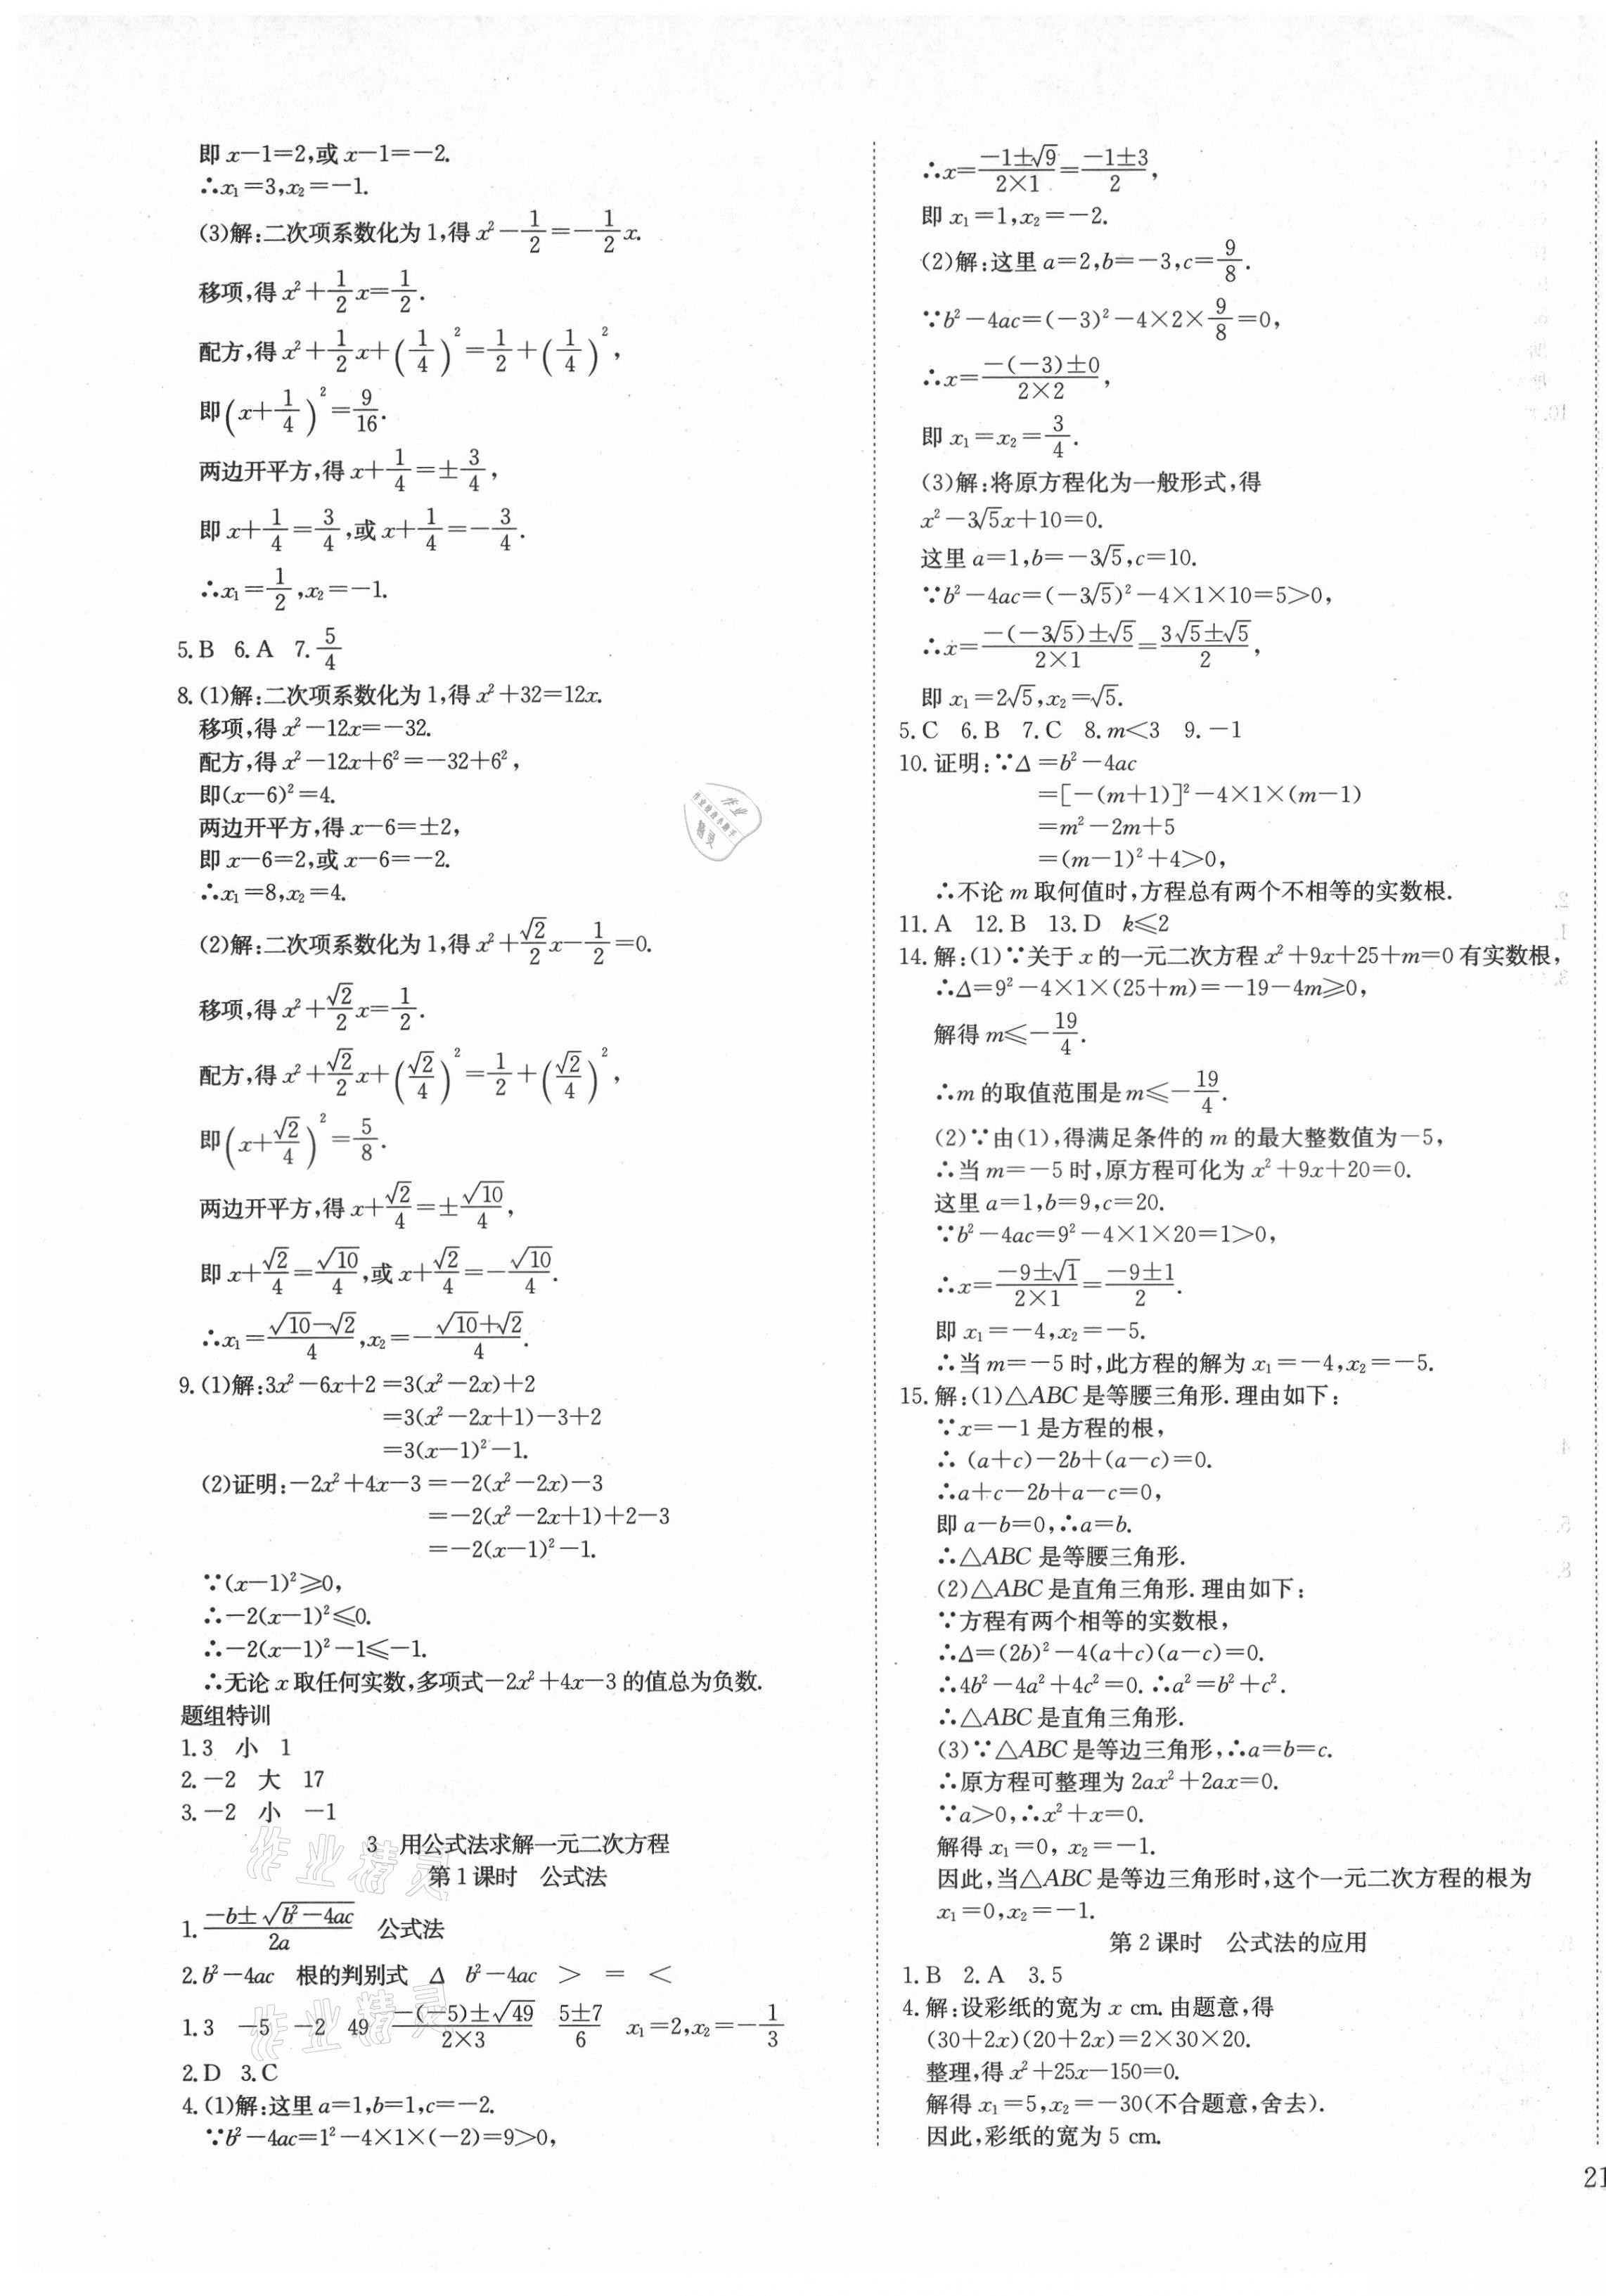 即 x－1＝2,或 x－1＝－2.
∴x₁＝3,x₂＝－1.
(3)解:二次项系数化为 1,得 x²－1/2＝－1/2x.
移项,得 x²＋1/2x＝1/2.
配方,得 x²＋1/2x＋(1/4)²＝1/2＋(1/4)²,
即(x＋1/4)²＝9/16.
两边开平方,得 x＋1/4＝±3/4,
即 x＋1/4＝3/4,或 x＋1/4＝－3/4.
∴x₁＝1/2,x₂＝－1.
5.B 6.A 7.5/4
8.(1)解:二次项系数化为 1,得 x²＋32＝12x.
移项,得 x²－12x＝－32.
配方,得 x²－12x＋6²＝－32＋6²,
即(x－6)²＝4.
两边开平方,得 x－6＝±2,
即 x－6＝2,或 x－6＝－2.
∴x₁＝8,x₂＝4.
(2)解:二次项系数化为 1,得 x²＋√2/2x－1/2＝0.
移项,得 x²＋√2/2x＝1/2.
配方,得 x²＋√2/2x＋(√2/4)²＝1/2＋(√2/4)²,
即(x＋√2/4)²＝5/8.
两边开平方,得 x＋√2/4＝±√10/4,
即 x＋√2/4＝√10/4,或 x＋√2/4＝－√10/4.
∴x₁＝(√10－√2)/4,x₂＝－(√10＋√2)/4.
9.(1)解:3x²－6x＋2＝3(x²－2x)＋2
＝3(x²－2x＋1)－3＋2
＝3(x－1)²－1.
(2)证明:－2x²＋4x－3＝－2(x²－2x)－3
＝－2(x²－2x＋1)＋2－3
＝－2(x－1)²－1.
∵(x－1)²≥0,
∴－2(x－1)²≤0.
∴－2(x－1)²－1≤－1.
∴无论 x 取任何实数,多项式－2x²＋4x－3 的值总为负数.
题组特训
1.3 小 1
2.－2 大 17
3.－2 小 －1
3 用公式法求解一元二次方程
第 1 课时 公式法
1.(－b±√(b²－4ac))/2a 公式法
2.b²－4ac 根的判别式 Δ b²－4ac ＞ ＝ ＜
1.3 －5 －2 49 (－(－5)±√49)/(2×3) (5±7)/6 x₁＝2,x₂＝－1/3
2.D 3.C
4.(1)解:这里 a＝1,b＝1,c＝－2.
∵b²－4ac＝1²－4×1×(－2)＝9＞0,
∴x＝(－1±√9)/(2×1)＝(－1±3)/2,
即 x₁＝1,x₂＝－2.
(2)解:这里 a＝2,b＝－3,c＝9/8.
∵b²－4ac＝(－3)²－4×2×9/8＝0,
∴x＝(－(－3)±0)/(2×2),
即 x₁＝x₂＝3/4.
(3)解:将原方程化为一般形式,得
x²－3√5x＋10＝0.
这里 a＝1,b＝－3√5,c＝10.
∵b²－4ac＝(－3√5)²－4×1×10＝5＞0,
∴x＝(－(－3√5)±√5)/(2×1)＝(3√5±√5)/2,
即 x₁＝2√5,x₂＝√5.
5.C 6.B 7.C 8.m＜3 9.－1
10.证明:∵Δ＝b²－4ac
＝[－(m＋1)]²－4×1×(m－1)
＝m²－2m＋5
＝(m－1)²＋4＞0,
∴不论 m 取何值时,方程总有两个不相等的实数根.
11.A 12.B 13.D k≤2
14.解:(1)∵关于 x 的一元二次方程 x²＋9x＋25＋m＝0 有实数根,
∴Δ＝9²－4×1×(25＋m)＝－19－4m≥0,
解得 m≤－19/4.
∴m 的取值范围是 m≤－19/4.
(2)∵由(1),得满足条件的 m 的最大整数值为－5,
∴当 m＝－5 时,原方程可化为 x²＋9x＋20＝0.
这里 a＝1,b＝9,c＝20.
∵b²－4ac＝9²－4×1×20＝1＞0,
∴x＝(－9±√1)/(2×1)＝(－9±1)/2.
即 x₁＝－4,x₂＝－5.
∴当 m＝－5 时,此方程的解为 x₁＝－4,x₂＝－5.
15.解:(1)△ABC 是等腰三角形.理由如下:
∵x＝－1 是方程的根,
∴(a＋c)－2b＋(a－c)＝0.
∴a＋c－2b＋a－c＝0,
即 a－b＝0,∴a＝b.
∴△ABC 是等腰三角形.
(2)△ABC 是直角三角形.理由如下:
∵方程有两个相等的实数根,
∴Δ＝(2b)²－4(a＋c)(a－c)＝0.
∴4b²－4a²＋4c²＝0.∴a²＝b²＋c².
∴△ABC 是直角三角形.
(3)∵△ABC 是等边三角形,∴a＝b＝c.
∴原方程可整理为 2ax²＋2ax＝0.
∵a＞0,∴x²＋x＝0.
解得 x₁＝0, x₂＝－1.
因此,当△ABC 是等边三角形时,这个一元二次方程的根为
x₁＝0,x₂＝－1.
第 2 课时 公式法的应用
1.B 2.A 3.5
4.解:设彩纸的宽为 x cm.由题意,得
(30＋2x)(20＋2x)＝2×30×20.
整理,得 x²＋25x－150＝0.
解得 x₁＝5,x₂＝－30(不合题意,舍去).
因此,彩纸的宽为 5 cm.
21
作业精灵
作业精灵